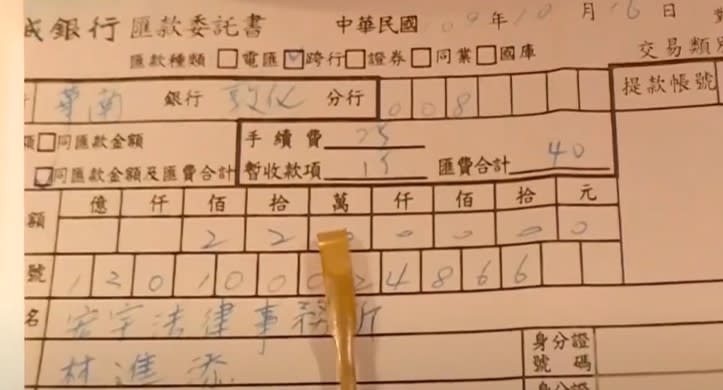 銀行匯款委託書 中華民國 09年10月16日
匯款種類 □電匯 ☑跨行 □證券 □同業 □國庫 交易類別
華南 銀行 敦化 分行 008 提款帳號
□同匯款金額 手續費 25
同匯款金額及匯費合計 暫收款項 15 匯費合計 40
億 仟 佰 拾 萬 仟 佰 拾 元
額 2 2 0 0 0 0 0
號 1 2 0 1 0 0 0 2 4 8 6 6
名 宏宇法律事務所
林進添 身分證
號碼